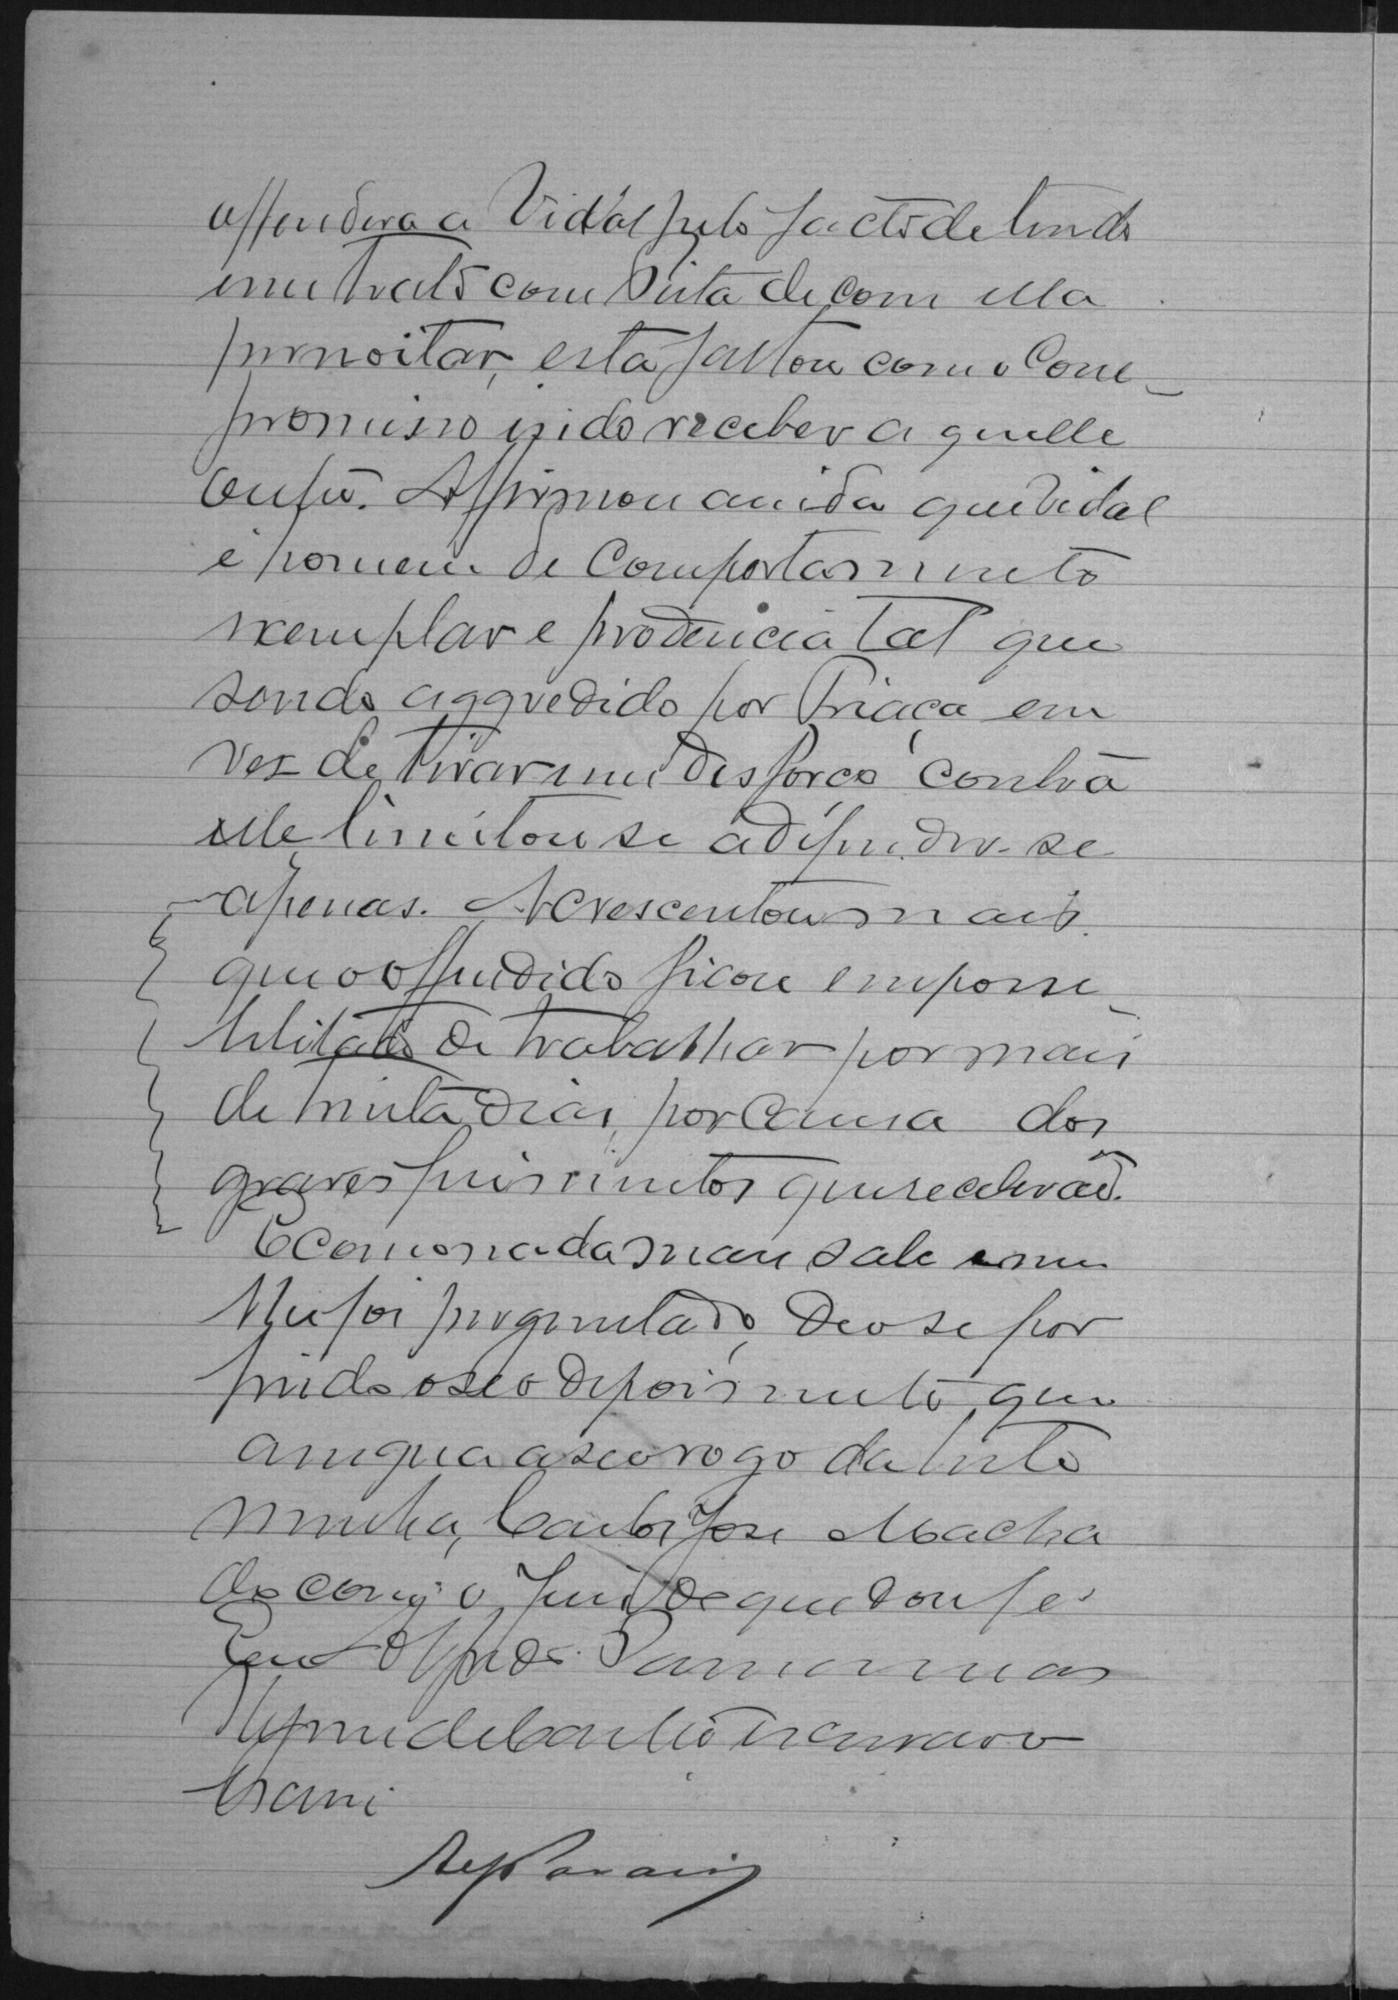 offendera a Vidal pelo facto de tendo
um trato com Rita de com ella
pernoitar, esta faltou com o Com-
promisso indo receber a quelle
Affirmou ainda que Vidal
é homem de Comportamento
exemplar e prodencia tal que
sendo aggredido por Priaça em
vez de tirar um desforço contra
elle limitou se a defender-se
apenas. Acrescentou mais
que o offendido ficou empossi
bilitado de trabalhar por mais
de trinta dias, por causa dos
graves ferimentos que recebeu.
E como nada mais sabe e nem
lhe foi perguntado, deo se por
findo o seo depoimento que
assigna a seo rogo da teste
munha, José Macha
do com o Juiz de que dou fé
Eu Alfredo